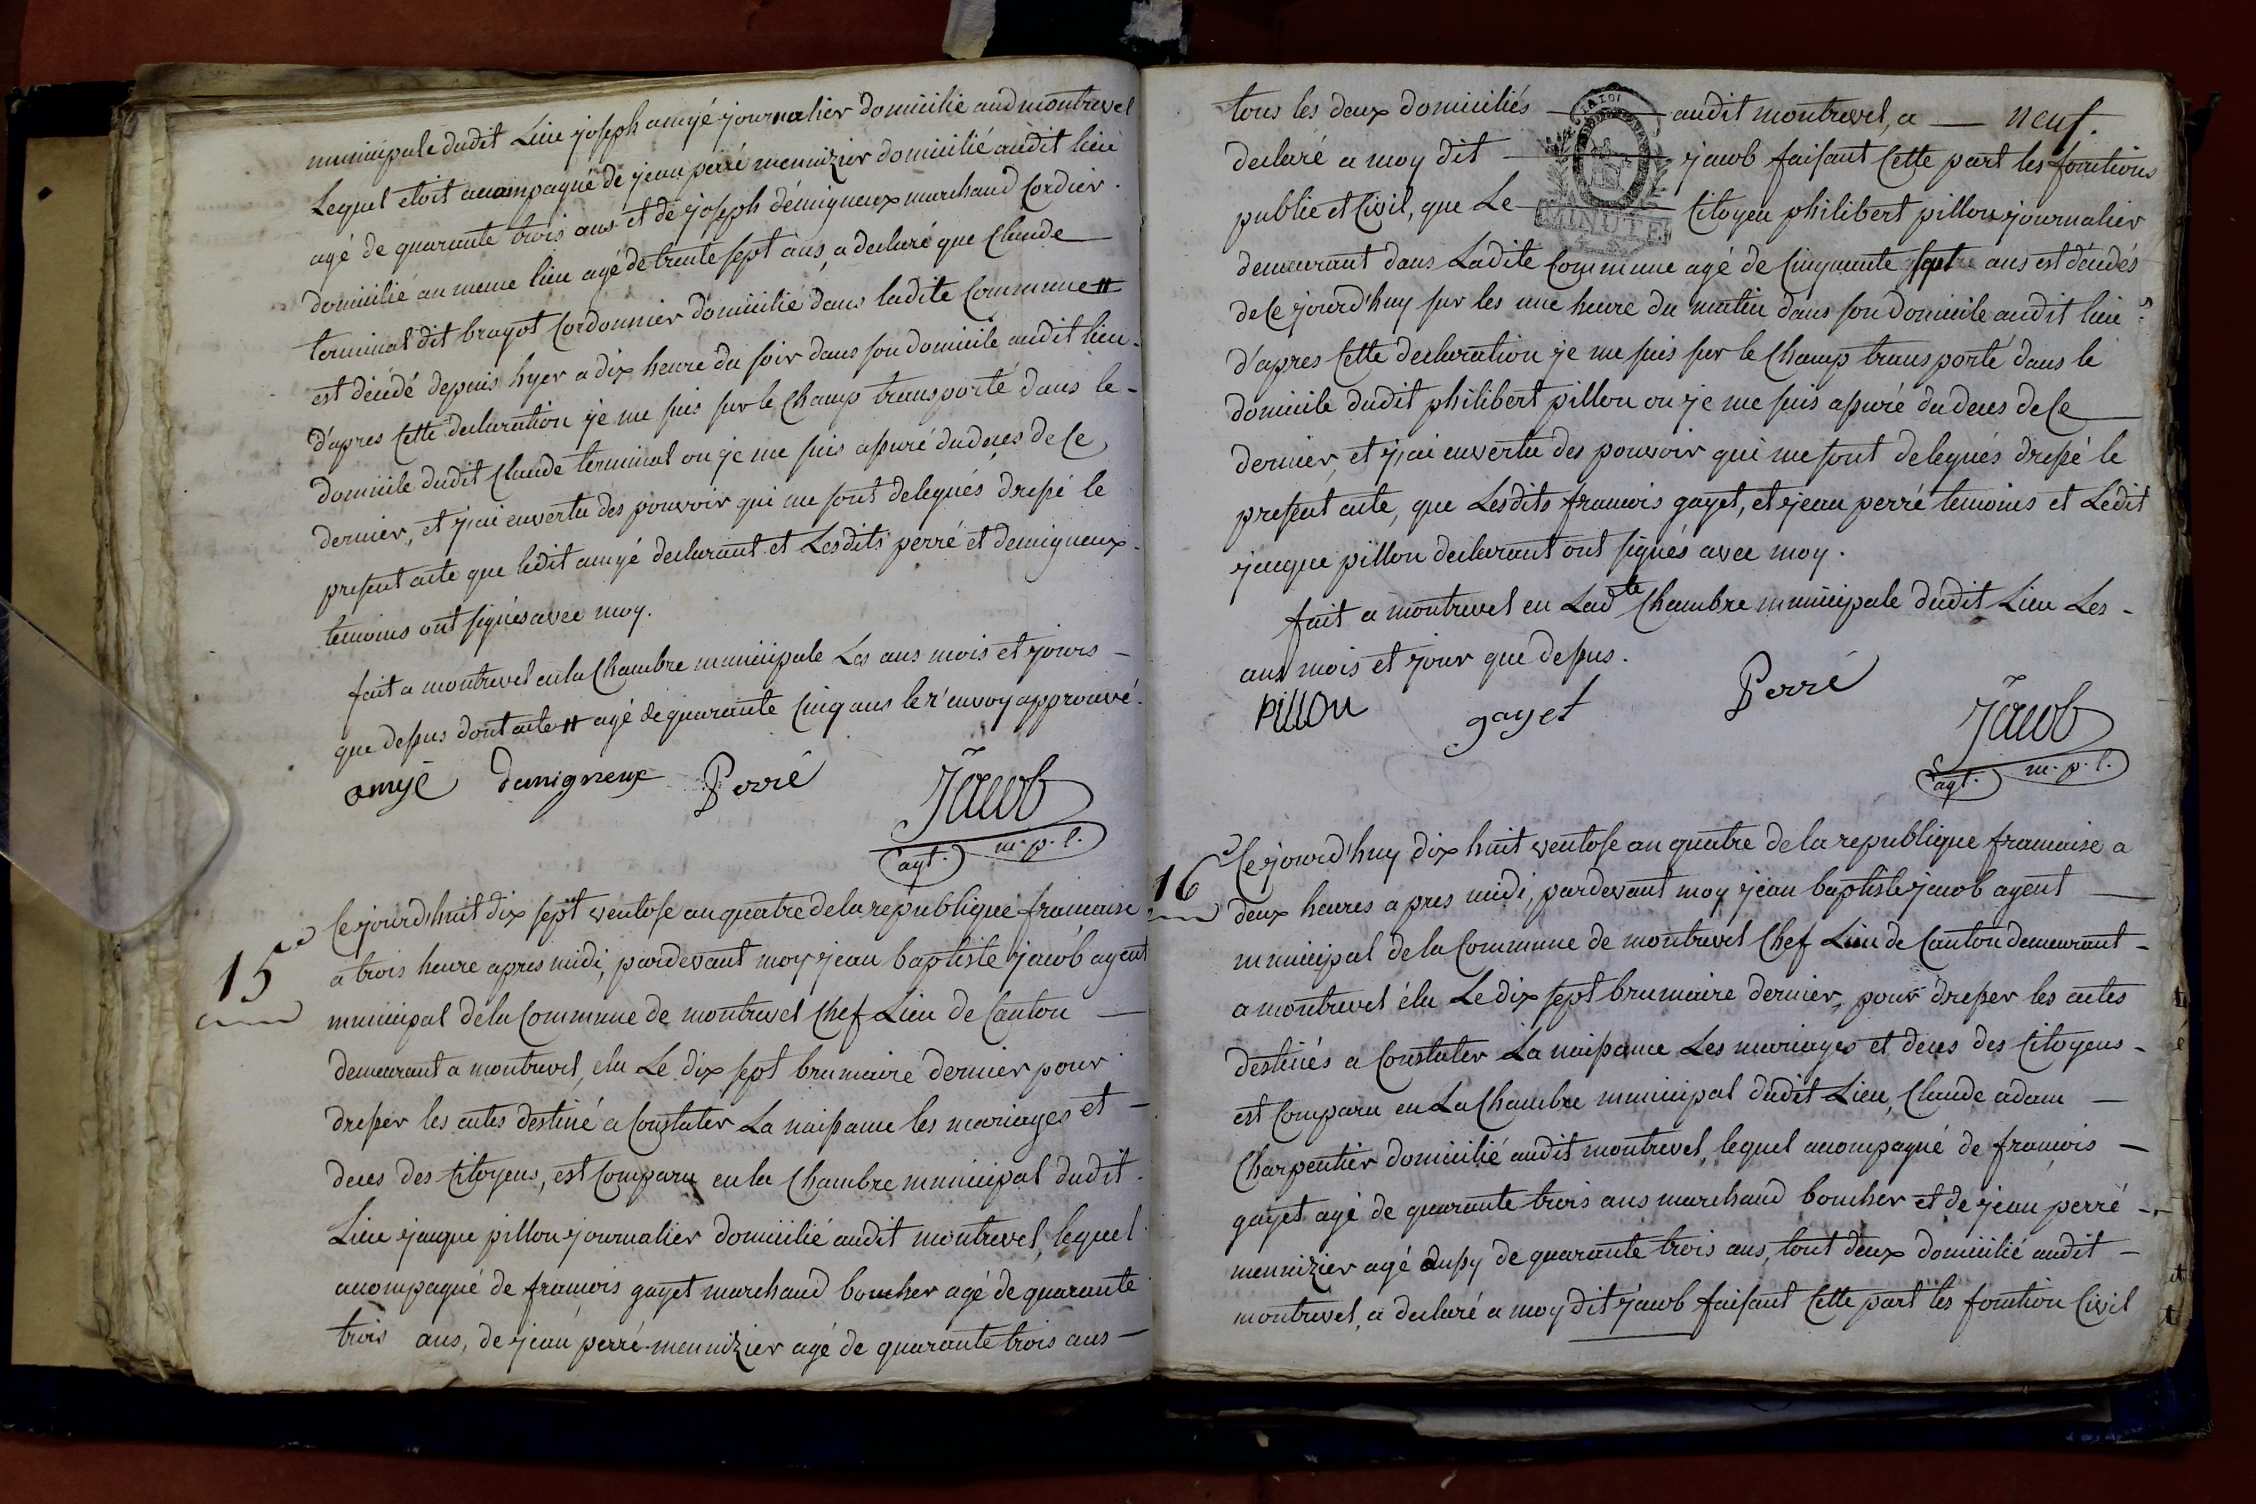 municipale dudit Lieu joseph amyé journalier domicilié aud montrevel
Lequel etoit acompagné de jean perré menuizier domicilié audit lieu
agé de quarante trois ans et de joseph démigneux marchand Cordier.
domicilié au meme lieu agé de trente sept ans, a declaré que Claude
terminal dit brayot Cordonnier domicilié dans ladite Commune #
est décédé depuis hyer a dix heure du soir dans son domicile audit lieu.
d'apres Cette declaration je me suis sur le Champ transporté dans le -
domicile dudit Claude terminal ou je me suis assuré du deces de Ce
dernier, et j'ai envertu des pouvoir qui me sont delegués dressé le
present acte que ledit amyé declarant et Lesdits perré et demigneux.
temoins ont signés avec moy.
fait a montrevel en la Chambre municipale Les ans mois et jours -
que dessus dont acte # agé de quarante Cinq ans le r'envoy approuvé.
amyé demigneux Perré Jacob
agt. m. p. l.
15e
Ce jourd'huit dix sept ventose an quatre de la republique francaise
a trois heure apres midi, pardevant moy jean baptiste jacob agent
municipal de la Commune de montrevel Chef Lieu de Canton
demeurant a montrevel, elu Le dix sept brumaire dernier pour
dresser les actes destiné a Constater La naissance les mariages et -
deces des Citoyens, est Comparu en la Chambre municipal dudit.
Lieu jauque pillon journalier domicilié audit montrevel, lequel
acompagné de francois gayet marchand boucher agé de quarante
trois ans, de jean perré menuizier agé de quarante trois ans -
tous les deux domiciliés audit montrevel, a — neuf.
declaré a moy dit jacob faisant Cette part les fonctions
public et Civil, que Le Citoyen philibert pillon journalier
MINUTE
demeurant dans Ladite Commune agé de Cinquante sept ans est décédés
de Ce jourd'huy sur les une heure du matin dans son domicile audit lieu
d'apres Cette declaration je me suis sur le Champ transporté dans le
domicile dudit philibert pillon ou je me suis assuré du deces de Ce
dernier, et j'ai envertu des pouvoir qui me sont delegués dressé le
present acte, que Lesdits francois gayet, et jean perré temoins et Ledit
jauque pillon declarant ont signés avec moy.
fait a montrevel en Ladte Chambre municipale dudit Lieu Les -
ans mois et jour que dessus.
Pillon gayet Perré Jacob
agt. m. p. l.
16e
Ce jourd'huy dix huit ventose an quatre de la republique francaise a
deux heures a pres midi, pardevant moy jean baptiste jacob agent
municipal de la Commune de montrevel Chef Lieu de Canton demeurant -
a montrevel élu Le dix sept brumaire dernier, pour dresser les actes
destinés a Constater La naissance Les mariages et deces des Citoyens -
est Comparu en La Chambre municipal dudit Lieu, Claude adam -
Charpentier domicilié audit montrevel, lequel acompagné de francois -
gayet agé de quarante trois ans marchand boucher et de jean perré -
menuizier agé aussy de quarante trois ans, tout deux domicilié audit -
montrevel, a declaré a moy dit jacob faisant Cette part les fonction Civil